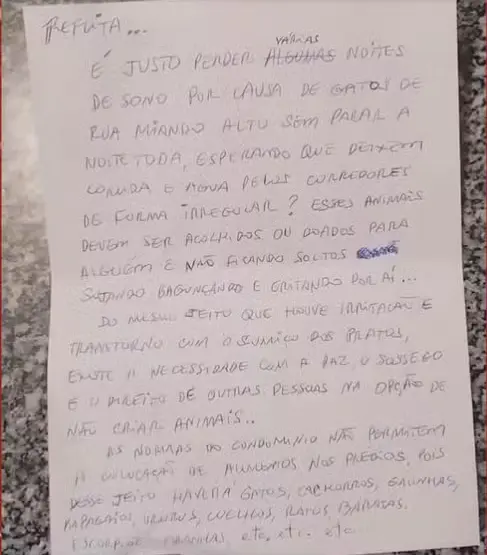 REFLITA...
É JUSTO PERDER ALGUMAS VÁRIAS NOITES
DE SONO POR CAUSA DE GATOS DE
RUA MIANDO ALTO SEM PARAR A
NOITE TODA, ESPERANDO QUE DEIXEM
COMIDA E ÁGUA PELOS CORREDORES
DE FORMA IRREGULAR? ESSES ANIMAIS
DEVEM SER ACOLHIDOS OU DOADOS PARA
ALGUÉM E NÃO FICANDO SOLTOS
SUJANDO BAGUNÇANDO E GRITANDO POR AÍ...
DO MESMO JEITO QUE HOUVE IRRITAÇÃO E
TRANSTORNO COM O SUMIÇO DOS PRATOS,
EXISTE A NECESSIDADE COM A PAZ, O SOSSEGO
E O DIREITO DE OUTRAS PESSOAS NA OPÇÃO DE
NÃO CRIAR ANIMAIS..
AS NORMAS DO CONDOMINIO NÃO PERMITEM
A COLOCAÇÃO DE ALIMENTOS NOS PRÉDIOS, POIS
DESSE JEITO HAVERÁ GATOS, CACHORROS, GALINHAS,
PAPAGAIOS, URUBUS, COELHOS, RATOS, BARATAS,
ESCORPIÕES ARANHAS, etc, etc. etc.